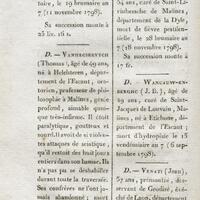 le, le 19 brumaire an
7 (11 novembre 1798).
Sa succession monte à
25 liv. 16 s.
D. — VANHECHEUTCH
(Thomas), âgé de 49 ans,
né à Helchteren, départe-
ment de l'Escaut, ora-
torien, professeur de philo-
sophie à Malines, génie
profond, aimable quoi-
que très-infirme. Il étoit
paralytique, goutteux et
sourd. Il avoit de si violen-
tes attaques de sciatique,
qu'il restoit des huit jours
entiers dans son hamac. Il
n'a pas pu se déshabiller
durant toute la traversée.
Ses confrères ne l'ont ja-
mais abandonné ; mort
64 ans, curé de Saint-Li-
vinhessche de Malines,
département de la Dyle,
mort de fièvre putride
le 28 brumaire an
7 (18 novembre 1798).
Sa succession monte à
74 fr.
D. — WANCAUW-EN-
BERGHE (J. B.), âgé de
49 ans, curé de Saint-
Jacques de Louvain, Ma-
lines, né à Etichove, dé-
partement de l'Escaut ;
mort d'hydropisie le 15
vendémiaire an 7 (6 sep-
tembre 1798).
D. — VENATI (JOHN),
57 ans, prémontré, des-
servant de Grodizé, évê-
ché de Laon, département